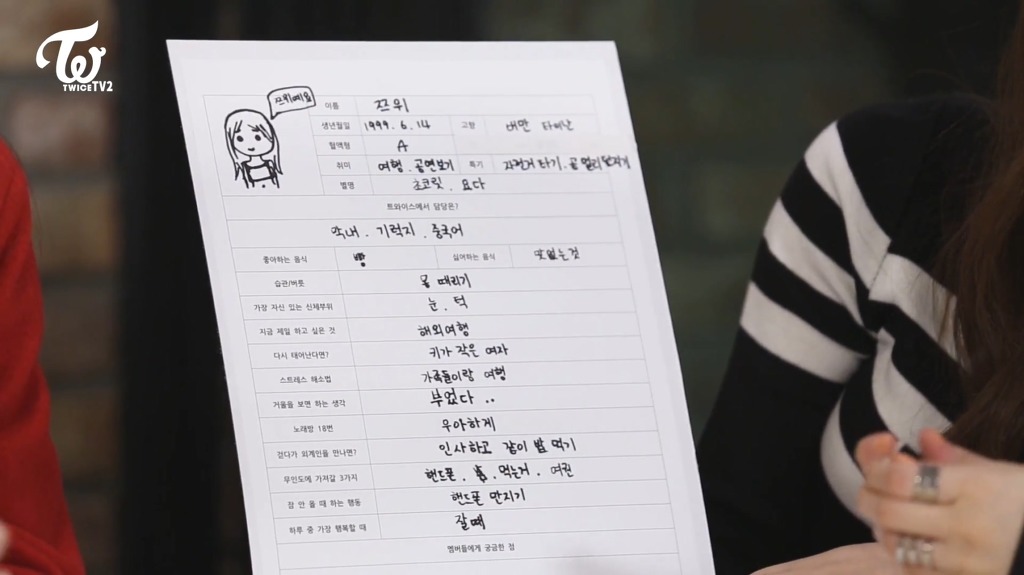 TW
TWICETV2
쯔위예요
이름 쯔위
생년월일 1999. 6. 14 고향 대만 타이난
혈액형 A
취미 여행. 공연보기 특기 자전거 타기. 공 멀리 던지기
별명 초코릿. 요다
트와이스에서 담당은?
막내. 기럭지. 중국어
좋아하는 음식 빵 싫어하는 음식 맛없는 것
습관/버릇 멍 때리기
가장 자신 있는 신체부위 눈. 턱
지금 제일 하고 싶은 것 해외여행
다시 태어난다면? 키가 작은 여자
스트레스 해소법 가족들이랑 여행
거울을 보면 하는 생각 부었다 ..
노래방 18번 우아하게
걷다가 외계인을 만나면? 인사하고 같이 밥 먹기
무인도에 가져갈 3가지 핸드폰. 먹는거. 여권
잠 안 올 때 하는 행동 핸드폰 만지기
하루 중 가장 행복할 때 잘때
멤버들에게 궁금한 점